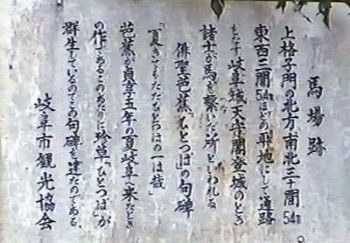 馬場跡
上格子門の北方南北三十間 54m
東西三間 54mほどの平地にして通路
もたず岐阜城天守閣登城のとき
諸士が馬を繋いだ所といわれる
俳聖芭蕉「ひとつば」の句碑
「夏きてもただひとつばの一は哉」
芭蕉が貞享五年の夏岐阜へ来たとき
の作であるこのあたりに羊歯「ひとつば」が
群生しているのでこの句碑を建たのである
岐阜市観光協会